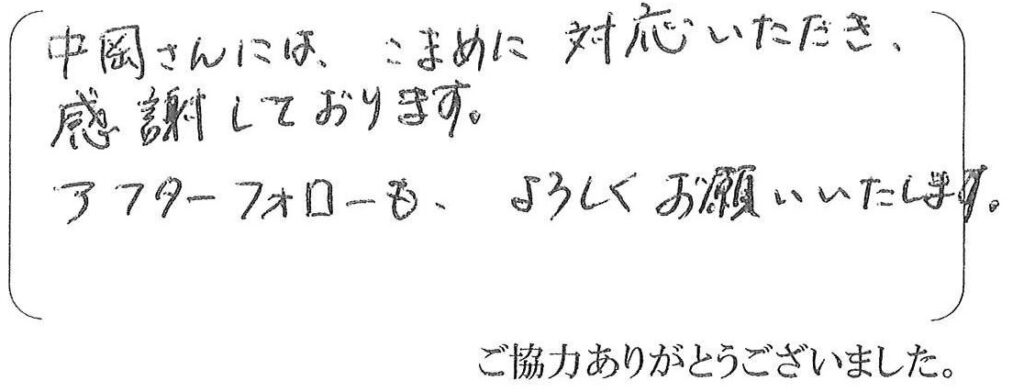 中岡さんには、こまめに対応いただき、
感謝しております。
アフターフォローも、よろしくお願いいたします。
ご協力ありがとうございました。